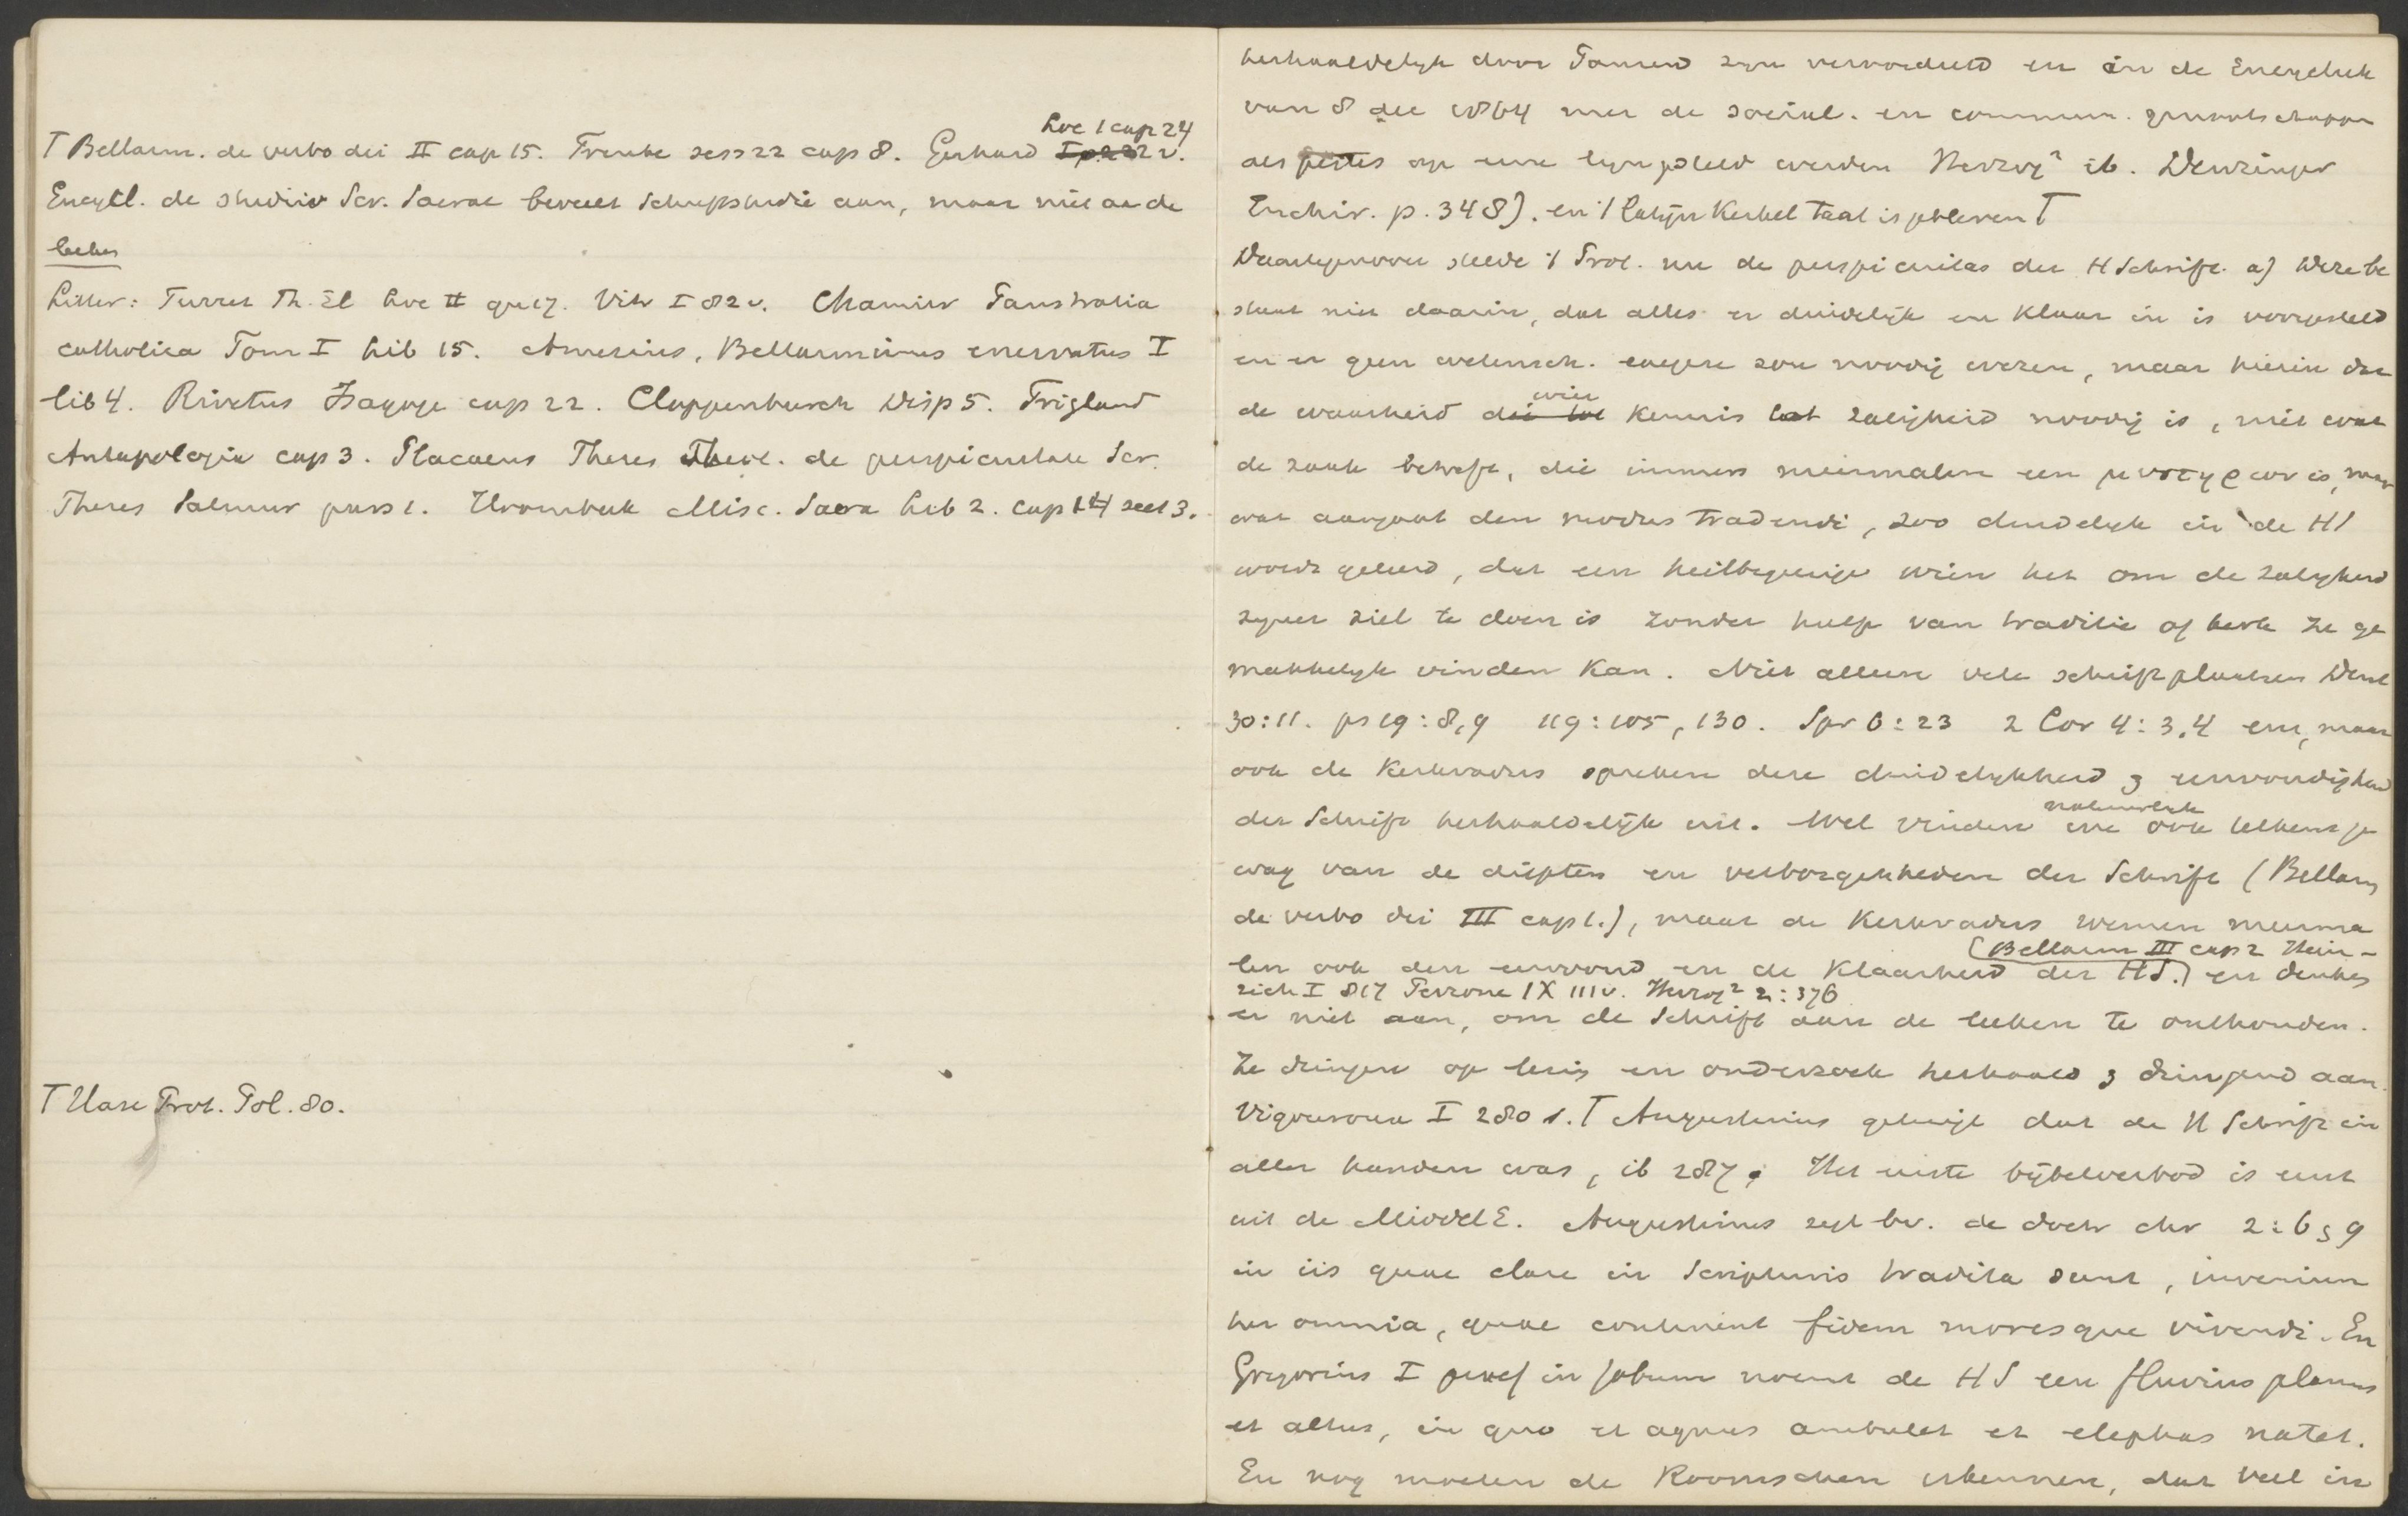 Loc 1 cap 24
T Bellarm. de verbo dei II cap 15. Trente sess 22 cap 8. Gerhard I p. 222 v.
Encycl. de studiis Scr. Sacrae beveelt Schriftstudie aan, maar niet aan de
leeken
Litter: Turret Th. El Loc II qu 17. Vitr I 82 v. Chamier Panstratia
catholica Tom I Lib 15. Amesius, Bellarminus enervatus I
lib 4. Rivetus Isagoge cap 22. Cloppenburch Disp 5. Trigland
Antapologia cap 3. Placaeus Theses Theol. de perspicuitate Scr.
Theses Salmur pars 1. Heidanus
T Hase Prot. Pol. 80.
herhaaldelijk door Pausen zijn veroordeeld en in de Encycliek
van 8 dec 1864 met de social. en commun. genootschappen
als pestes op eene lijn gesteld werden Herzog² ib. Denzinger
Enchir. p. 348). en 't Latijn Kerkel Taal is gebleven T
Daartegenover stelde 't Prot. nu de perspicuitas der H Schrift. a) Deze be
staat niet daarin, dat alles er duidelijk en klaar in is voorgesteld
en er geen wetensch. exegese zou noodig wezen, maar hierin dat
wier
de waarheid die tot kennis tot zaligheid noodig is, niet wat
de zaak betreft, die immers meermalen een μυστηριον is, maar
wat aangaat den modus tradendi, zoo duidelijk in de HS
wordt geleerd, dat een heilbegeerige wien het om de zaligheid
zijner ziel te doen is zonder hulp van traditie of kerk ze ge
makkelijk vinden kan. Niet alleen vele schriftplaatsen Deut
30:11. ps 19:8,9 119:105,130. Spr 6:23 2 Cor 4:3,4 enz, maar
ook de Kerkvaders spreken deze duidelijkheid & eenvoudigheid
natuurlijk
der Schrift herhaaldelijk uit. Wel vinden we ook telkens ge
wag van de diepten en verborgenheden der Schrift (Bellarm
de verbo dei III cap 1.), maar de Kerkvaders roemen meerma
(Bellarm III cap 2 Hein-
len ook den eenvoud en de klaarheid der HS.) en denken
rich I 817 Perrone IX 111 v. Herzog² 2:376
er niet aan, om de Schrift aan de leeken te onthouden.
Ze dringen op lezing en onderzoek herhaald & dringend aan.
Vigouroux I 280 s. T Augustinus getuigt dat de H Schrift in
aller handen was, ib 287; Het eerste bijbelverbod is eerst
uit de Middel E. Augustinus zegt bv. de doctr chr 2:6 & 9
in iis quae clare in Scripturis tradita sunt, inveniun
tur omnia, quae continent fidem moresque vivendi. En
Gregorius I praef in Jobum noemt de HS een fluvius planus
et altus, in quo et agnus ambulet et elephas natet.
En nog moeten de Roomschen erkennen, dat veel in